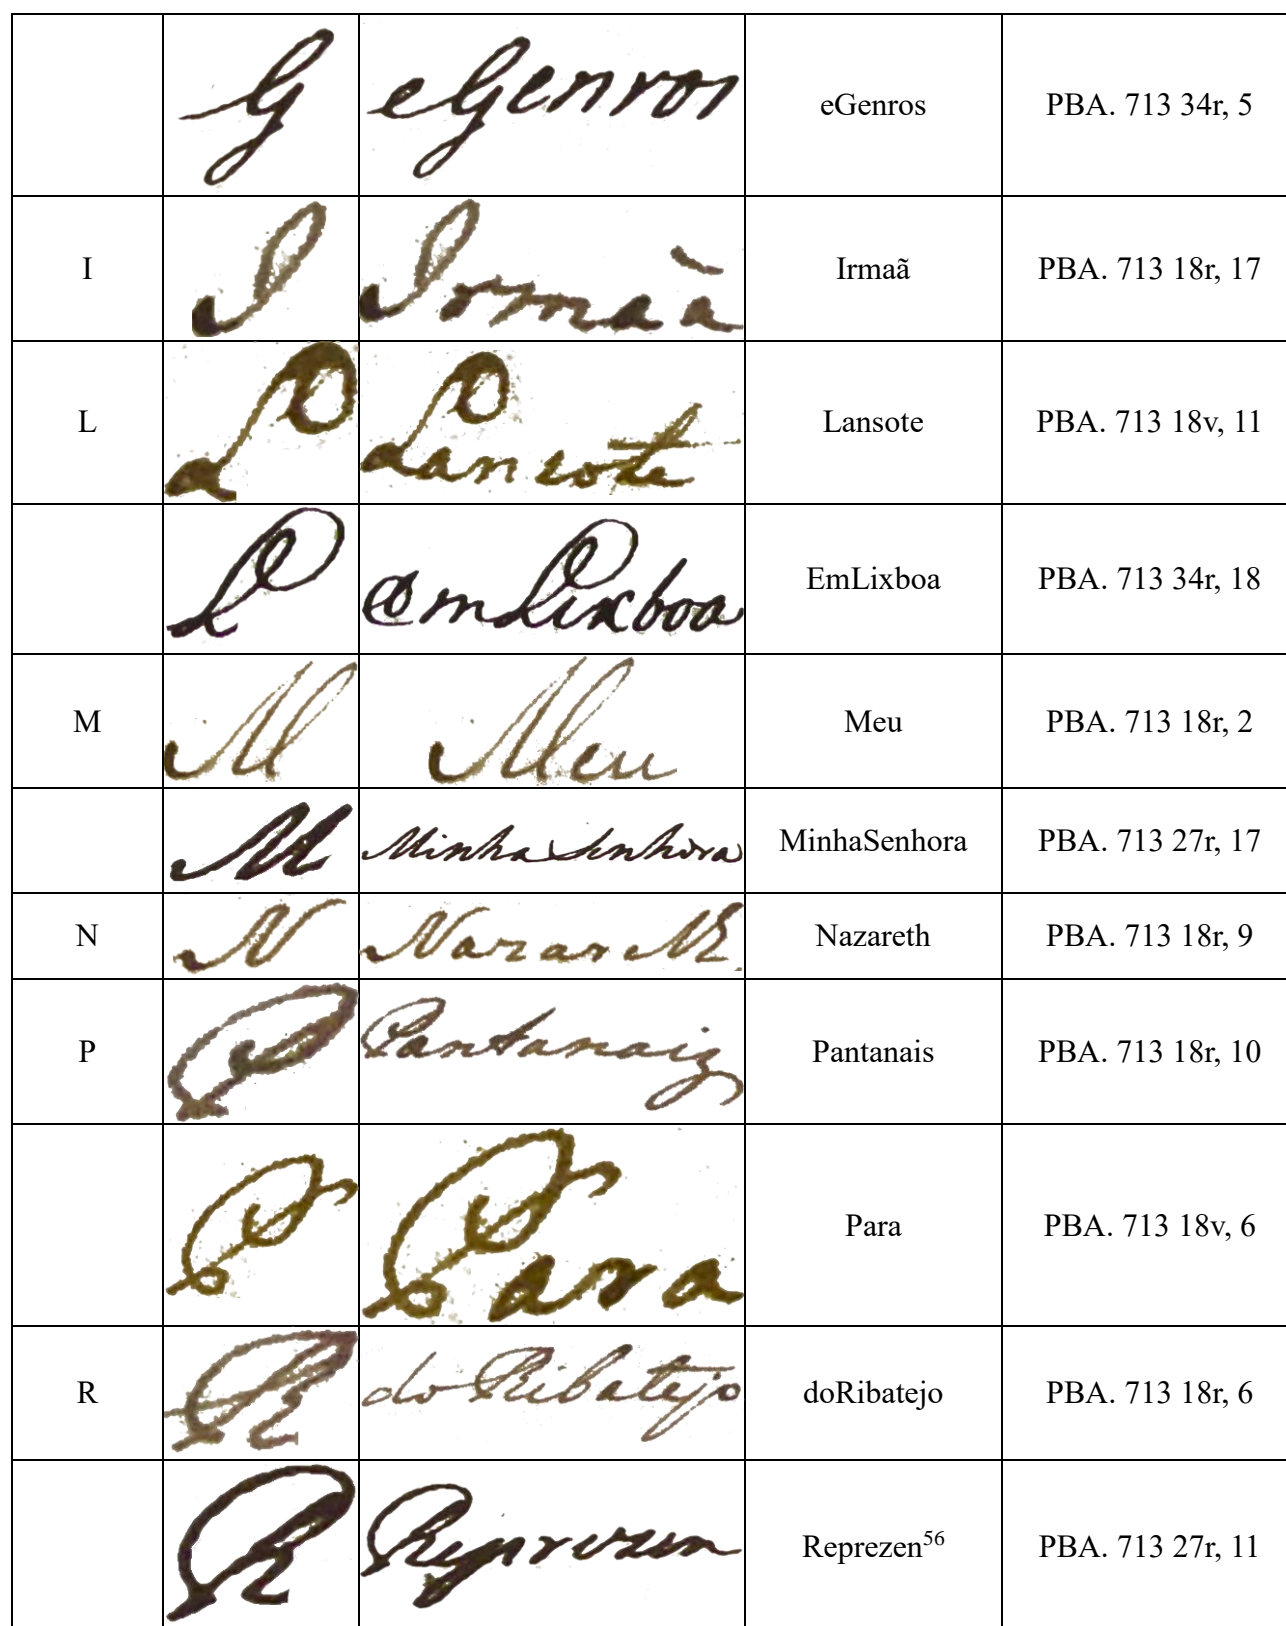 G eGenros eGenros PBA. 713 34r, 5
I I Irmaã Irmaã PBA. 713 18r, 17
L L Lansote Lansote PBA. 713 18v, 11
L EmLixboa EmLixboa PBA. 713 34r, 18
M M Meu Meu PBA. 713 18r, 2
M MinhaSenhora MinhaSenhora PBA. 713 27r, 17
N N Nazareth Nazareth PBA. 713 18r, 9
P P Pantanaiz Pantanais PBA. 713 18r, 10
P Para Para PBA. 713 18v, 6
R R doRibatejo doRibatejo PBA. 713 18r, 6
R Reprezen Reprezen⁵⁶ PBA. 713 27r, 11